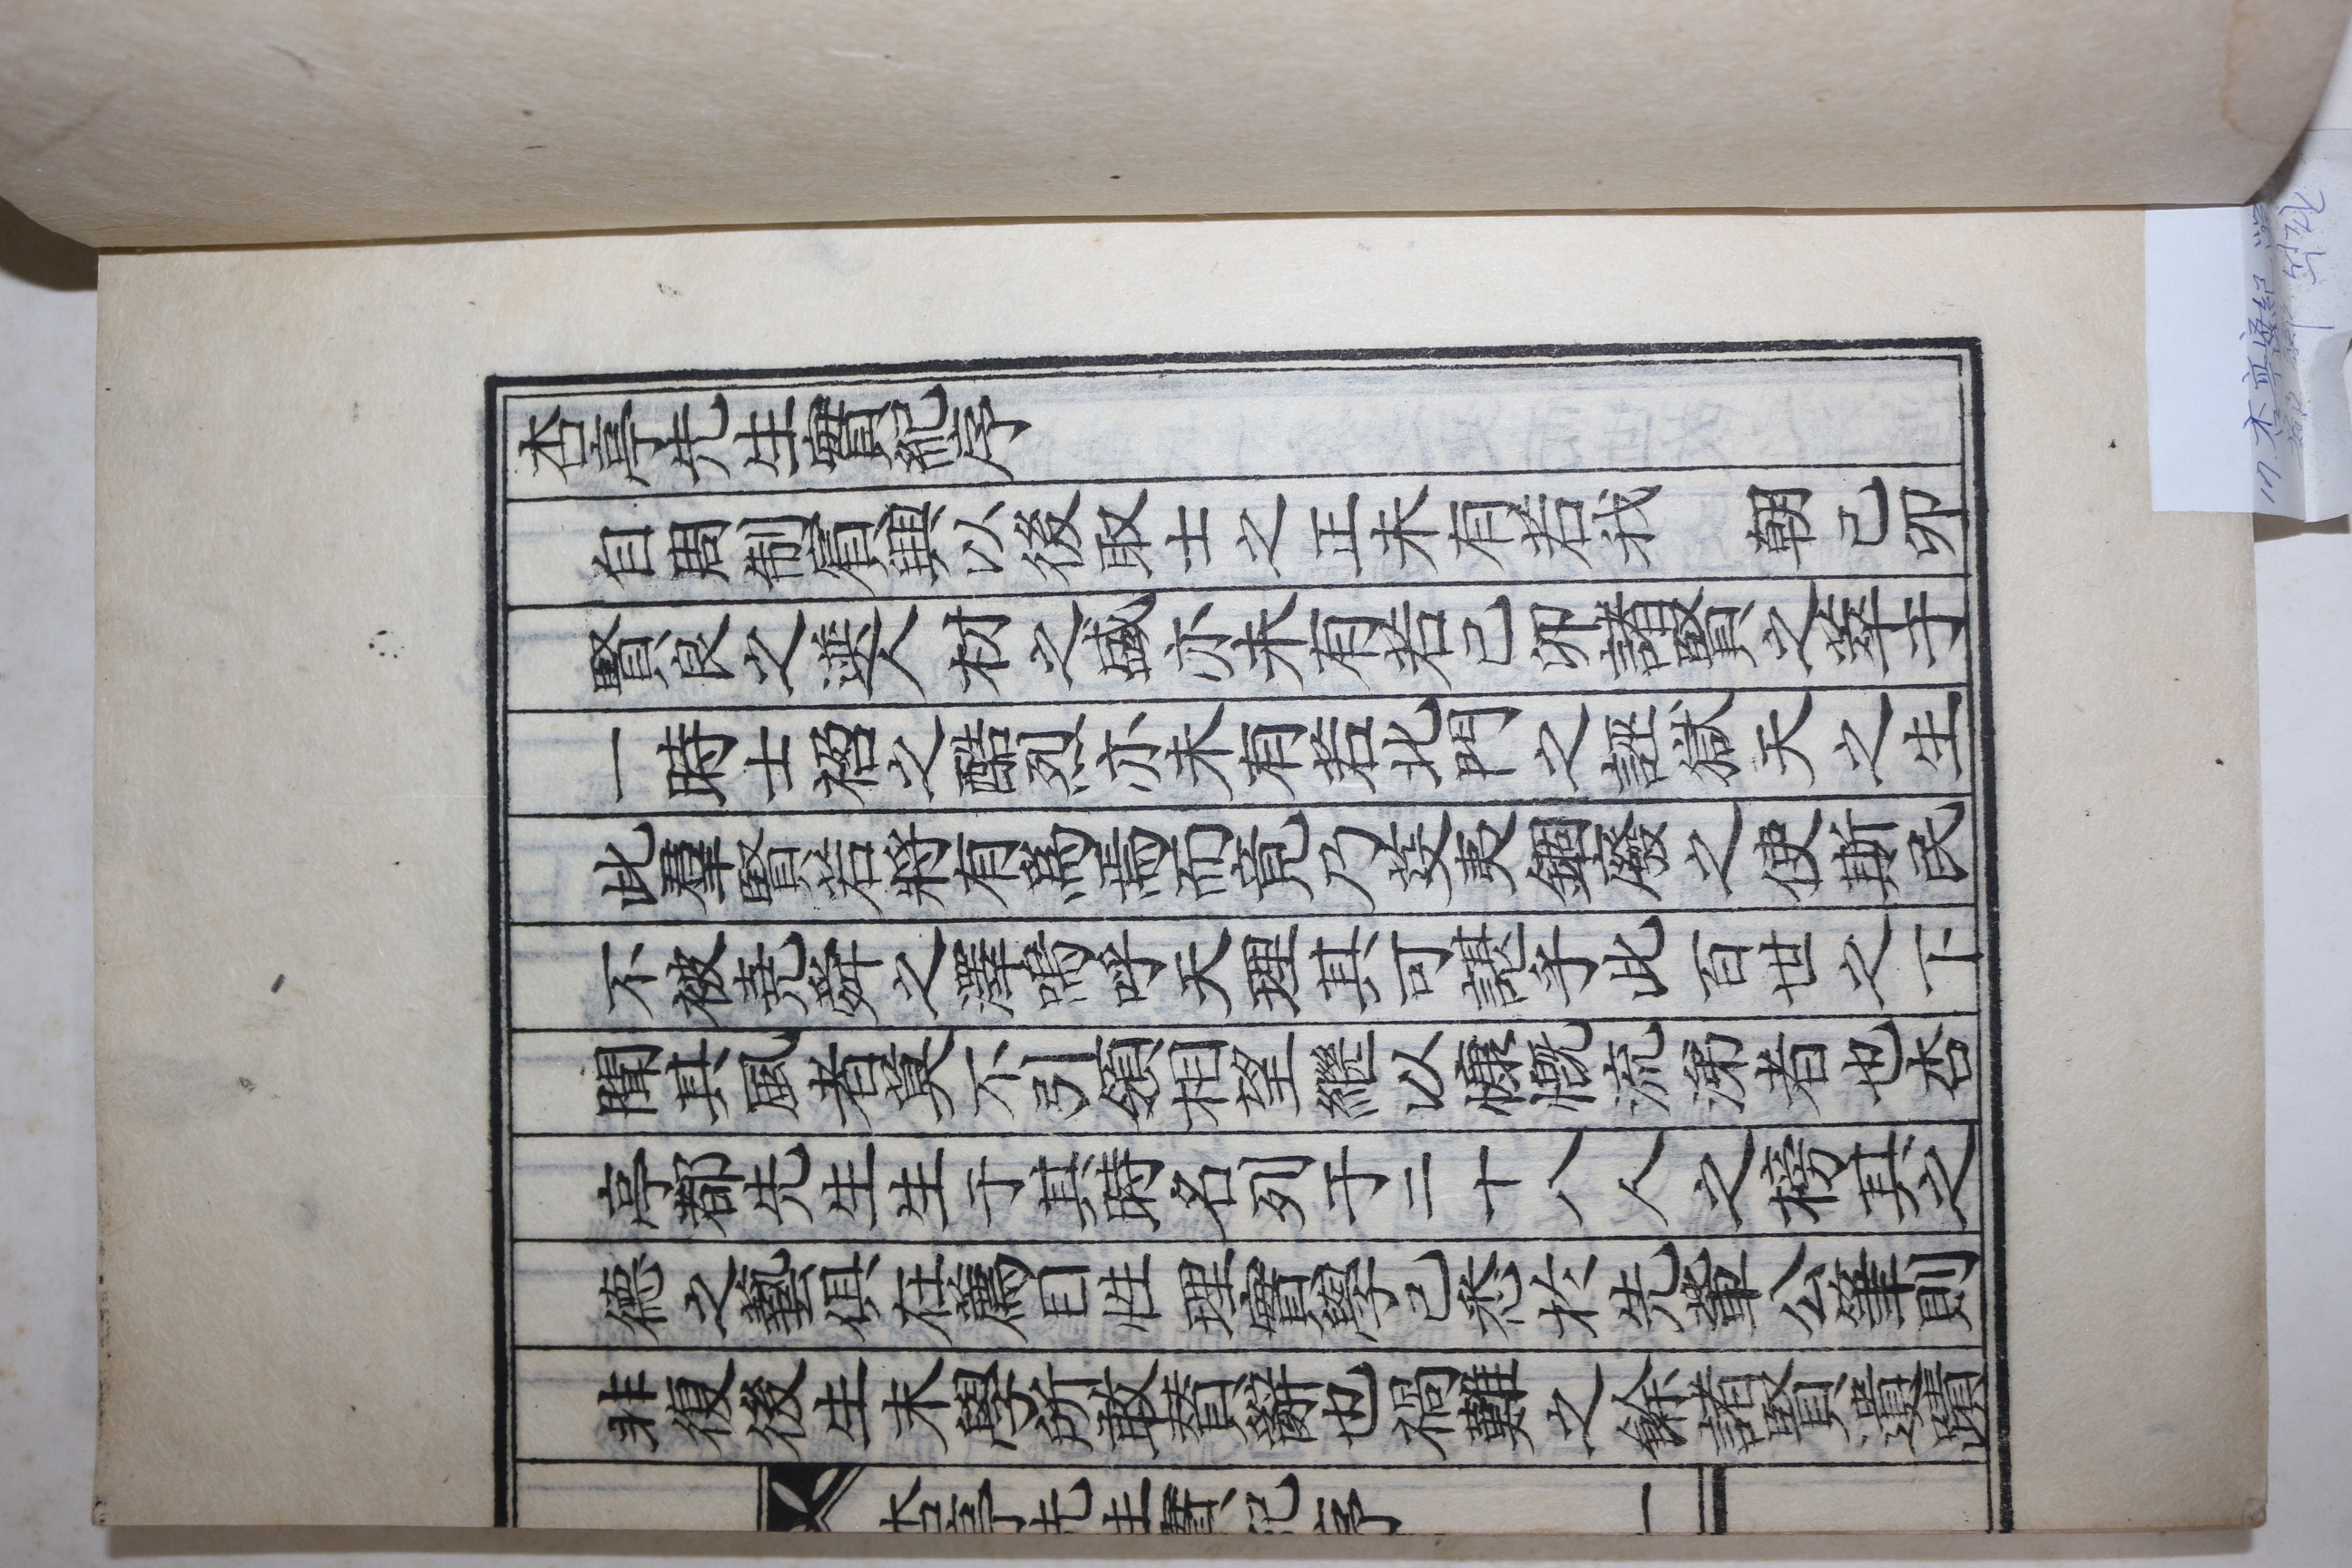 杏亭先生實紀序
自周制賓興以後取士之正未有若我　朝己卯
賢良之選人材之盛亦未有若己卯諸賢之萃于
一時士禍之酷烈亦未有若北門之誣獄天之生
此羣賢若將有爲焉而竟乃芟夷錮廢之使斯民
不被堯舜之澤嗚呼天理其可諶乎此百世之下
聞其風者莫不引領相望繼以慷慨流涕者也杏
亭都先生生于其時名列于二十八人之榜其之
德之藝俱在薦目性理實學已悉於先輩公筆則
非復後生末學所敢賛辭也禍難之餘諸賢遺蹟
杏亭先生實紀序　一
17. 杏亭實紀
목판